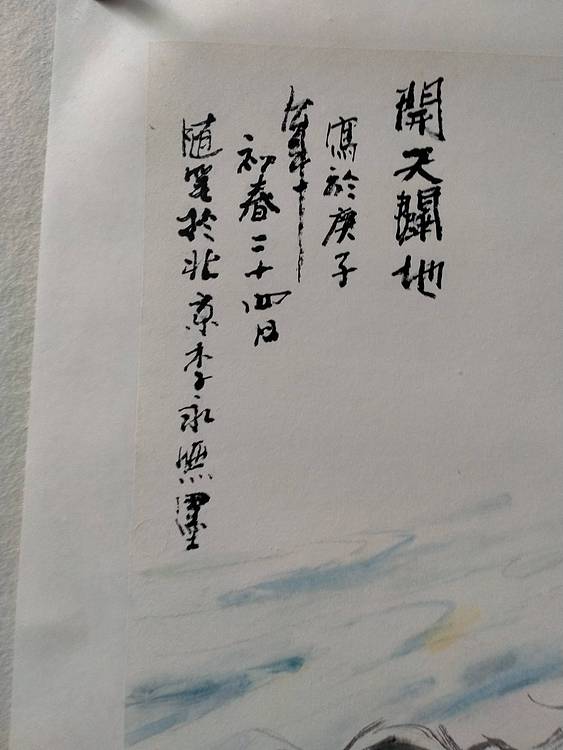 開天闢地
寫於庚子
年
初春二十四日
隨筆於北京李永 墨